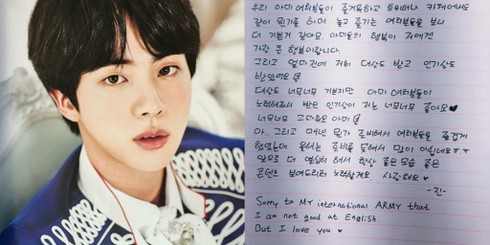 우리 아미여러분들이 즐거워하고 트위터나 카페에서도
같이 뭔가를 하며 놀고 즐기는 여러분들을 보니
더 기쁠거 같아요. 아미들의 행복이 저에겐
가장 큰 행복이랍니다.
그리고 얼마전에 저희 대상도 받고 인기상도
받았어요
대상도 너무너무 기쁘지만 아미여러분들이
노력해줘서 받은 인기상이 저는 너무너무 좋아요 ♥
너무너무 고마워요 아미
아.. 그리고 매년 뭔가 준비해서 여러분들을 즐겁게
했었는데 올해는 준비를 못해서 맘이 아쉽네요 ㅠㅠ
앞으로 더 열심히 해서 항상 좋은모습 좋은
콘텐츠 보여드리려 노력할게요. 사랑해요 ♥
-진-
Sorry to My international ARMY that
I am not good at English.
But I love you ♥